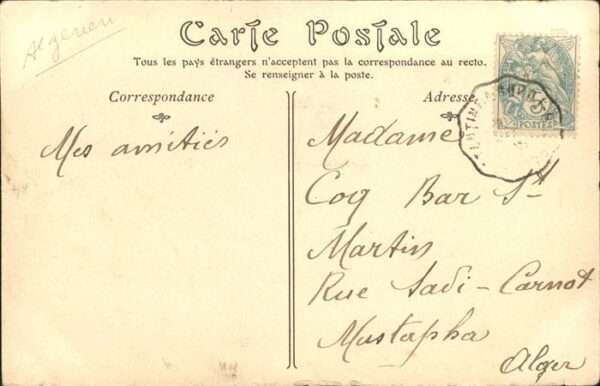 Algerien
Carte Postale
Tous les pays étrangers n'acceptent pas la correspondance au recto.
Se renseigner à la poste.
Correspondance
Adresse
Mes amitiés
Madame
Coq Bar St
Martin
Rue Sadi-Carnot
Mustapha
Alger
POSTES